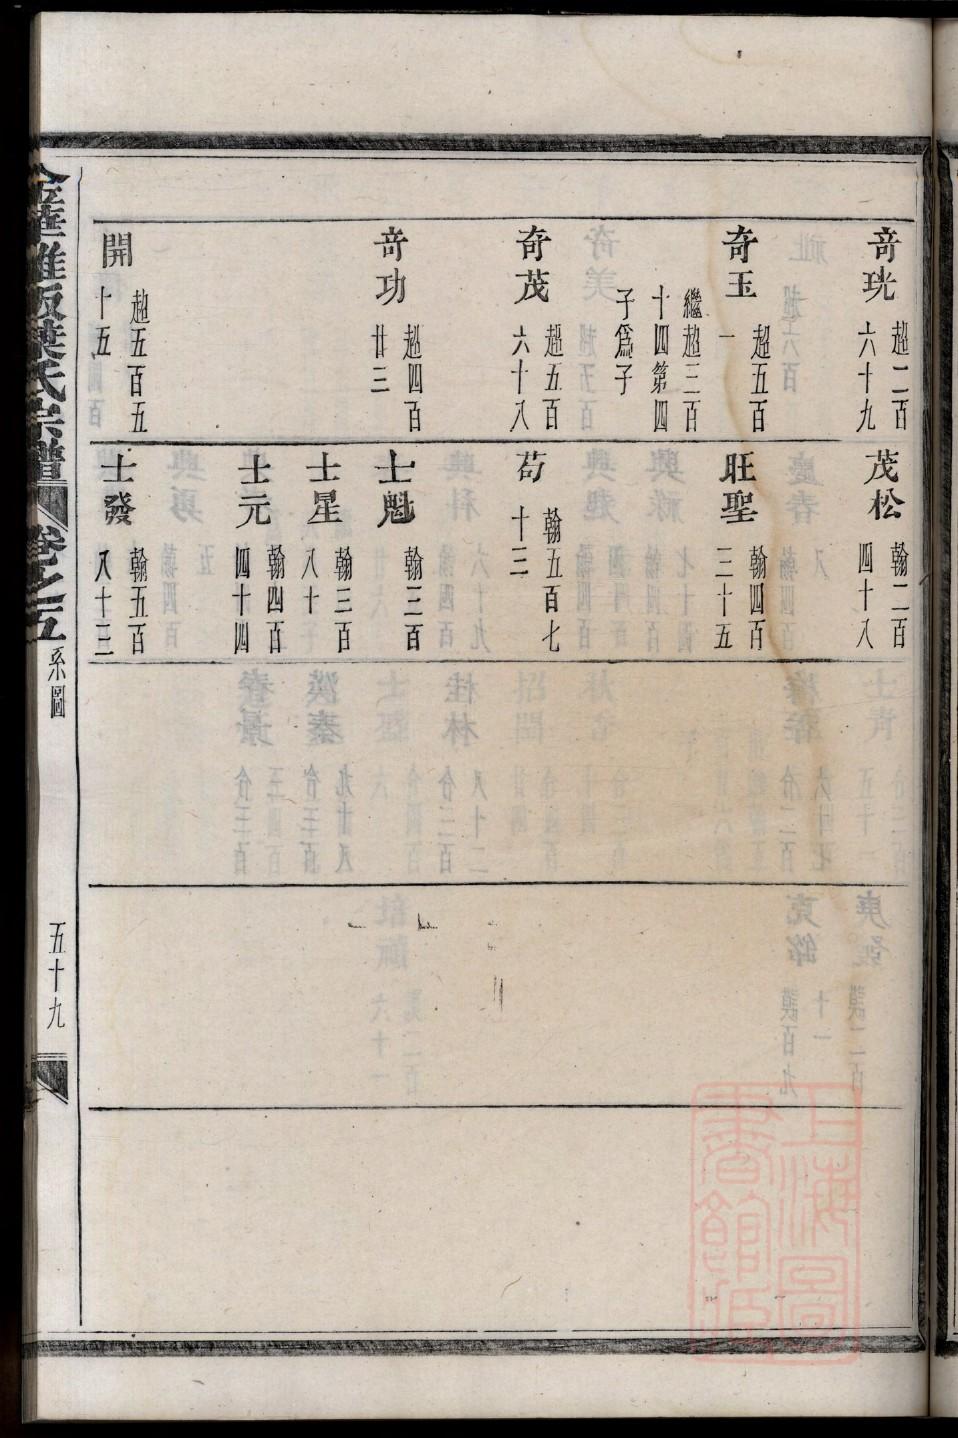 奇珖 超二百六十九
奇玉 超五百一
繼超三百十四第四子爲子
奇茂 超五百六十八
奇功 超四百廿三
開 超五百五十五
茂松 翰二百四十八
旺聖 翰四百三十五
苟 翰五百七十三
士魁 翰三百
士星 翰三百八十
士元 翰四百四十四
士發 翰五百八十三
金華雅畈葉氏宗譜 卷之五 系圖 五十九
上海圖書館藏